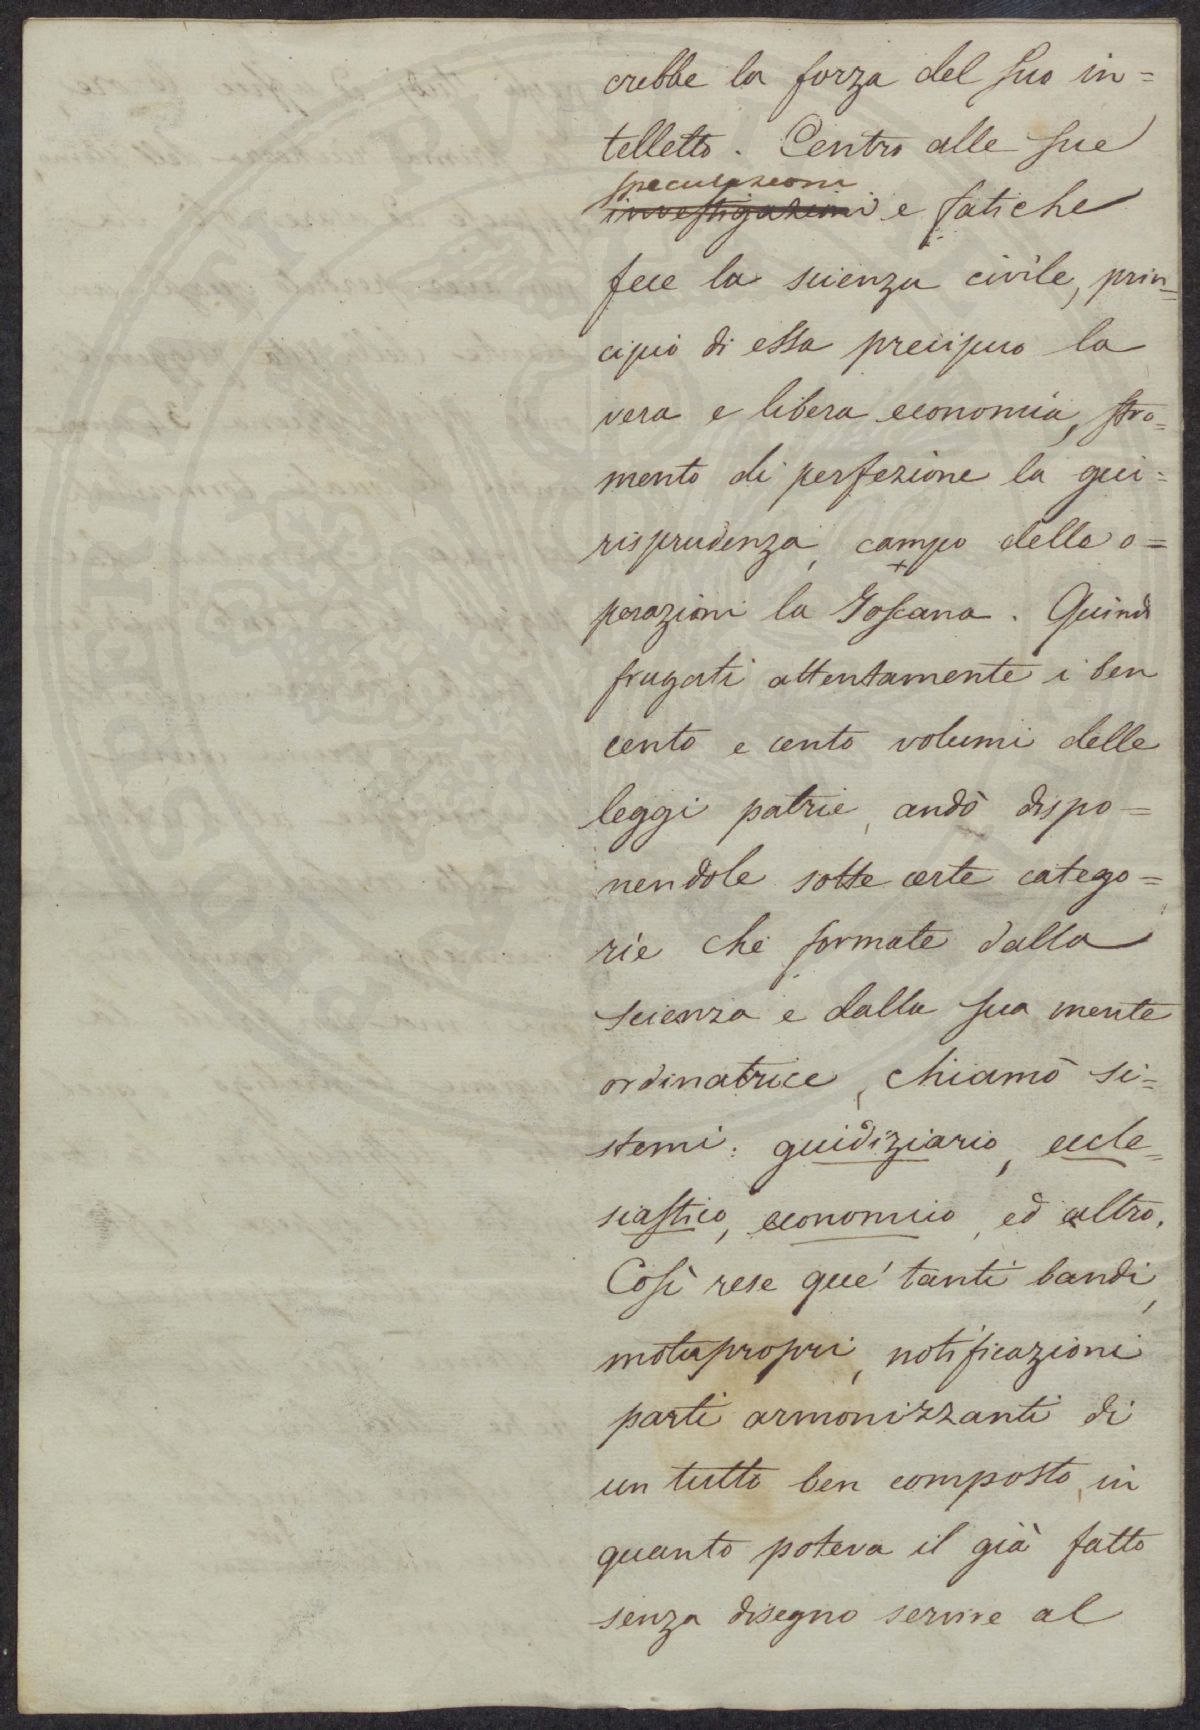 crebbe la forza del suo in=
telletto. Centro alle sue
speculazioni
investigazioni e fatiche
fece la scienza civile, prin=
cipio di essa precipuo la
vera e libera economia, stro=
mento di perfezione la giu=
risprudenza, campo delle o=
perazioni la Toscana. Quindi
frugati attentamente i ben
cento e cento volumi delle
leggi patrie, andò dispo=
nendole sotto certe catego=
rie che formate dalla
scienza e dalla sua mente
ordinatrice, chiamò si=
stemi: giudiziario, eccle=
siastico, economico, ed altro.
Così rese que' tanti bandi,
motupropri, notificazioni
parti armonizzanti di
un tutto ben composto, in
quanto poteva il già fatto
senza disegno servire al